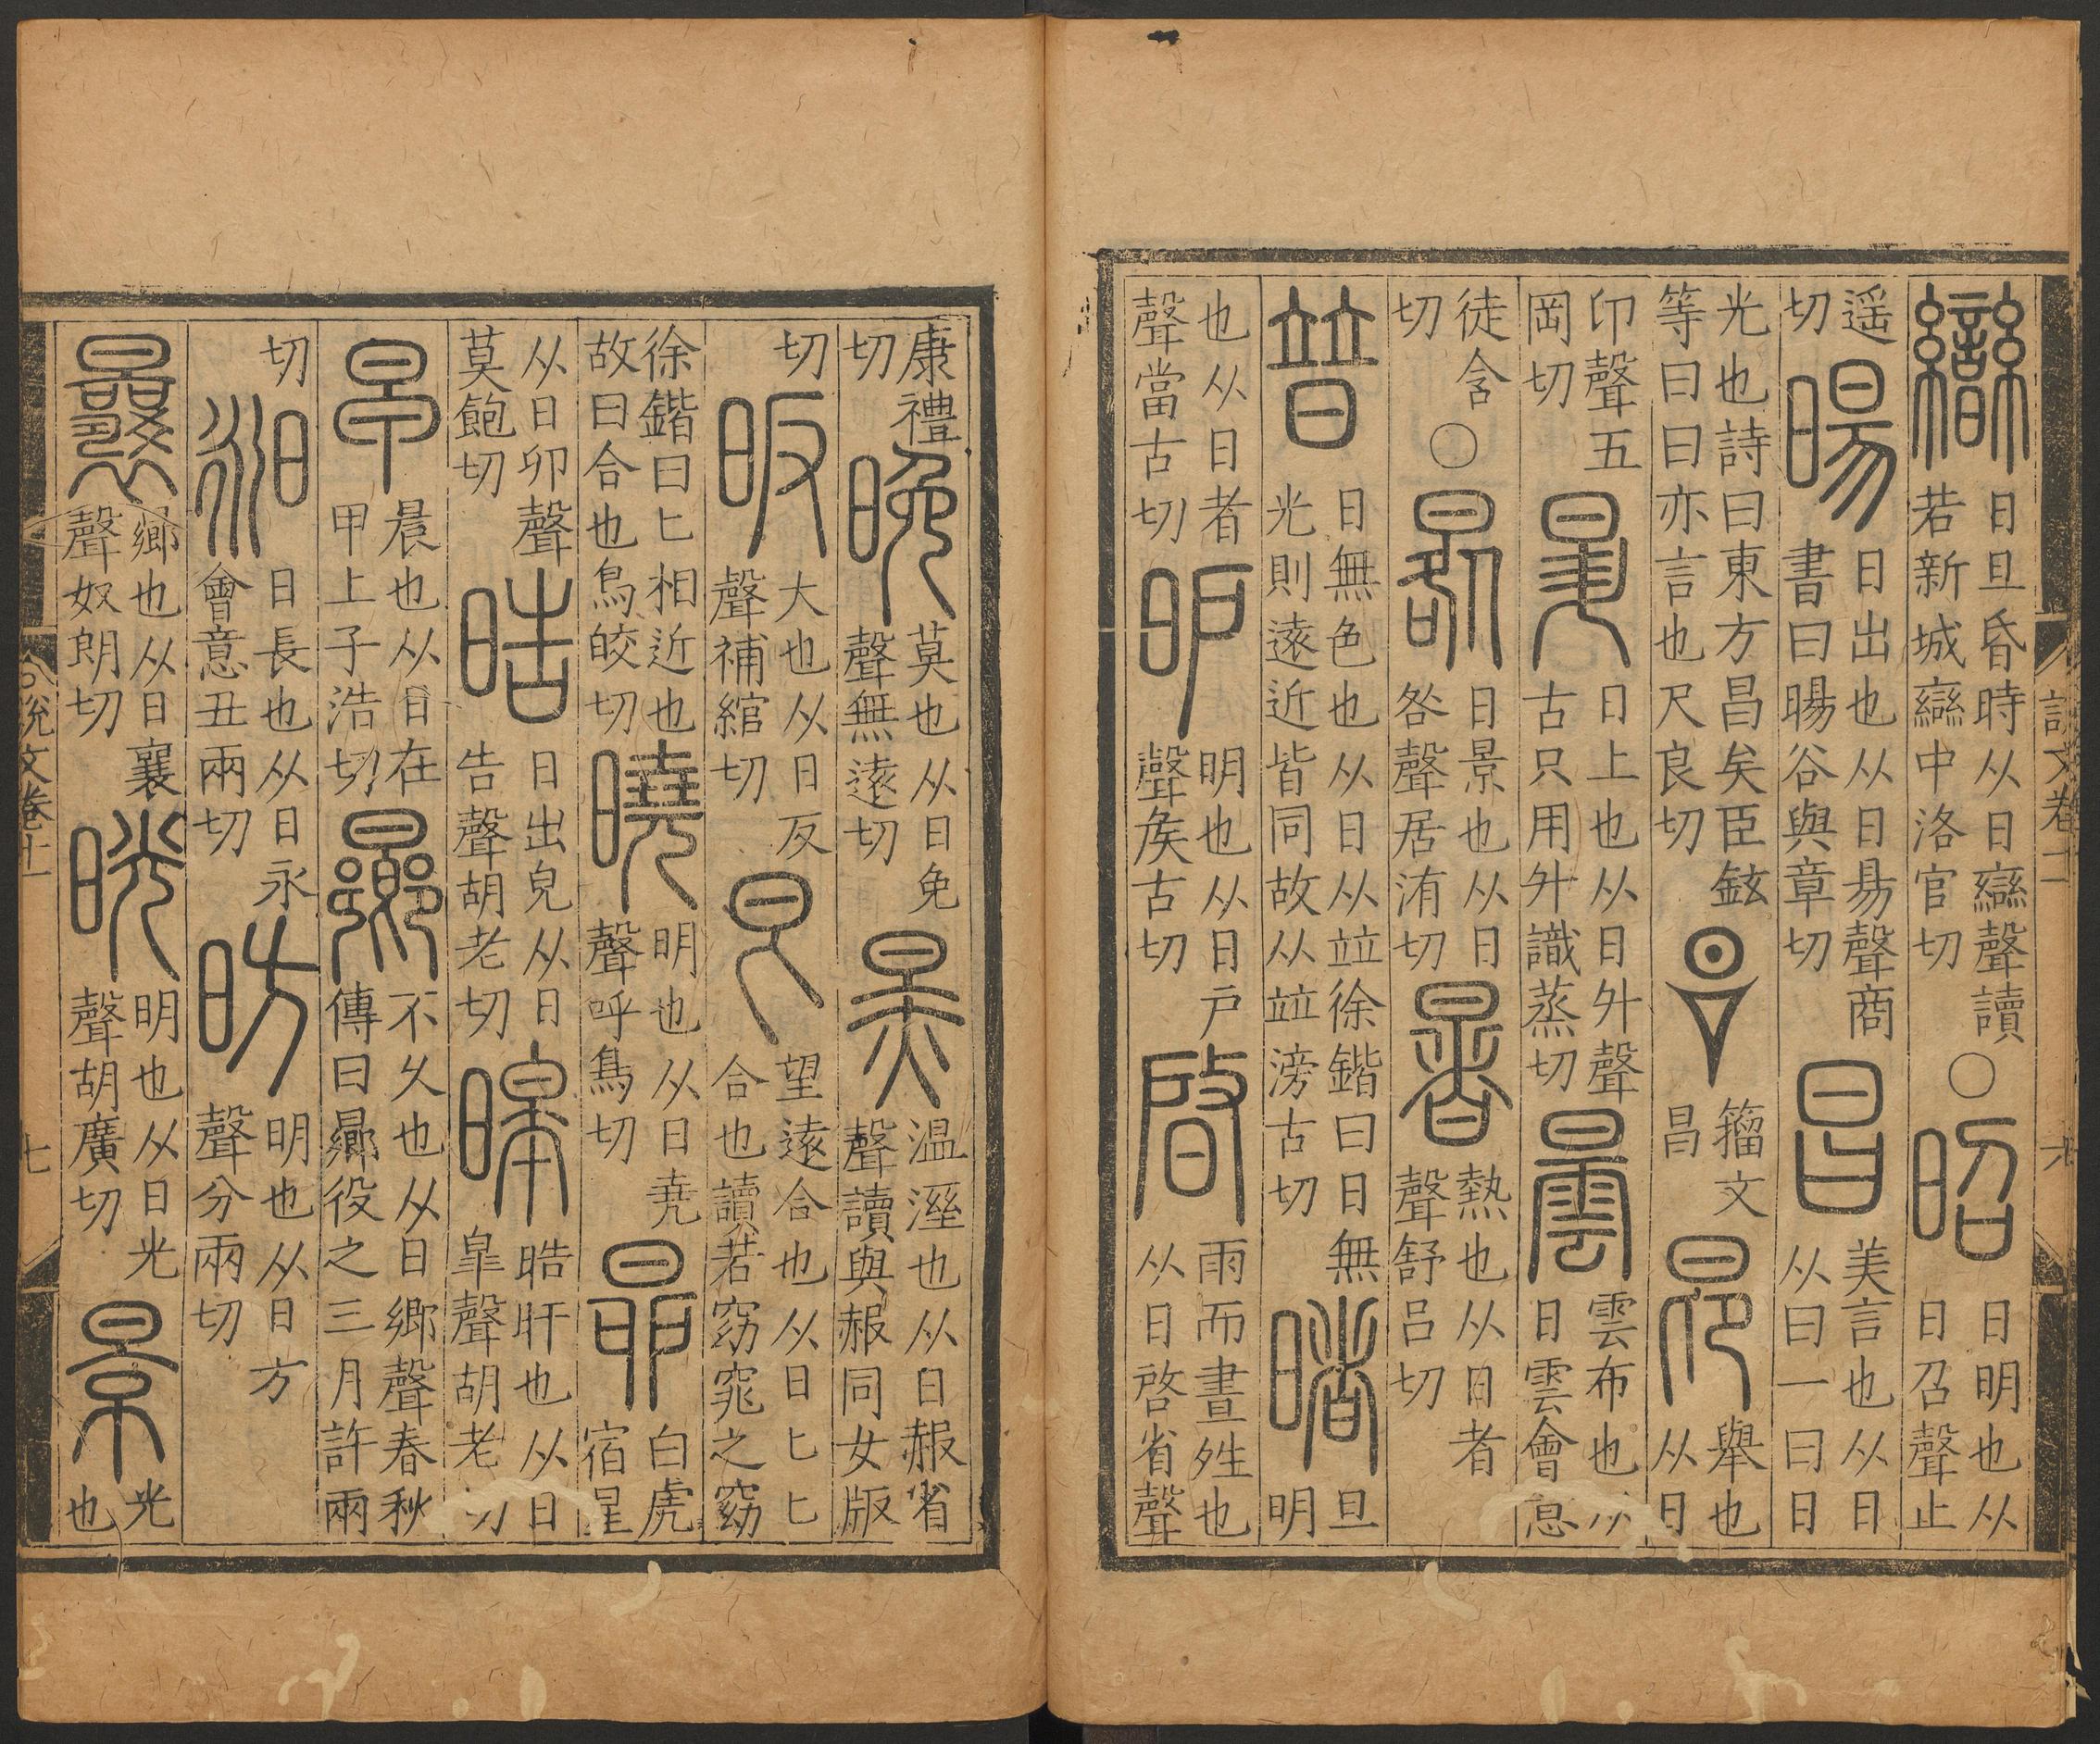 曫日旦昏時从日䜌聲讀若新城䜌中洛官切○昭日明也从日召聲止
遥切暘日出也从日昜聲商書曰暘谷與章切昌美言也从日从曰一曰日
光也詩曰東方昌矣臣鉉等曰曰亦言也尺良切籀文昌昂舉也从日
卬聲五岡切昇日上也从日升聲古只用升識蒸切曇雲布也从日雲會意
徒含切○晷日景也从日咎聲居洧切暑熱也从日者聲舒呂切
普日無色也从日从竝徐鍇曰日無光則遠近皆同故从竝滂古切睹旦明
也从日者聲當古切昈明也从日戶聲矦古切啓雨而晝姓也从日啓省聲
六
康禮切晚莫也从日免聲無遠切㬉温溼也从日赧省聲讀與赧同女版
切昄大也从日反聲補綰切㫐望遠合也从日匕匕合也讀若窈窕之窈
徐鍇曰匕相近也故曰合也烏皎切曉明也从日堯聲呼鳥切昴白虎宿星
从日卯聲莫飽切晧日出皃从日告聲胡老切暤晧旰也从日皐聲胡老切
早晨也从日在甲上子浩切曏不久也从日鄉聲春秋傳曰曏役之三月許兩
切昶日長也从日永會意丑兩切昉明也从日方聲分兩切
曩曏也从日襄聲奴朗切晄明也从日光聲胡廣切景光也
說文卷十一
七